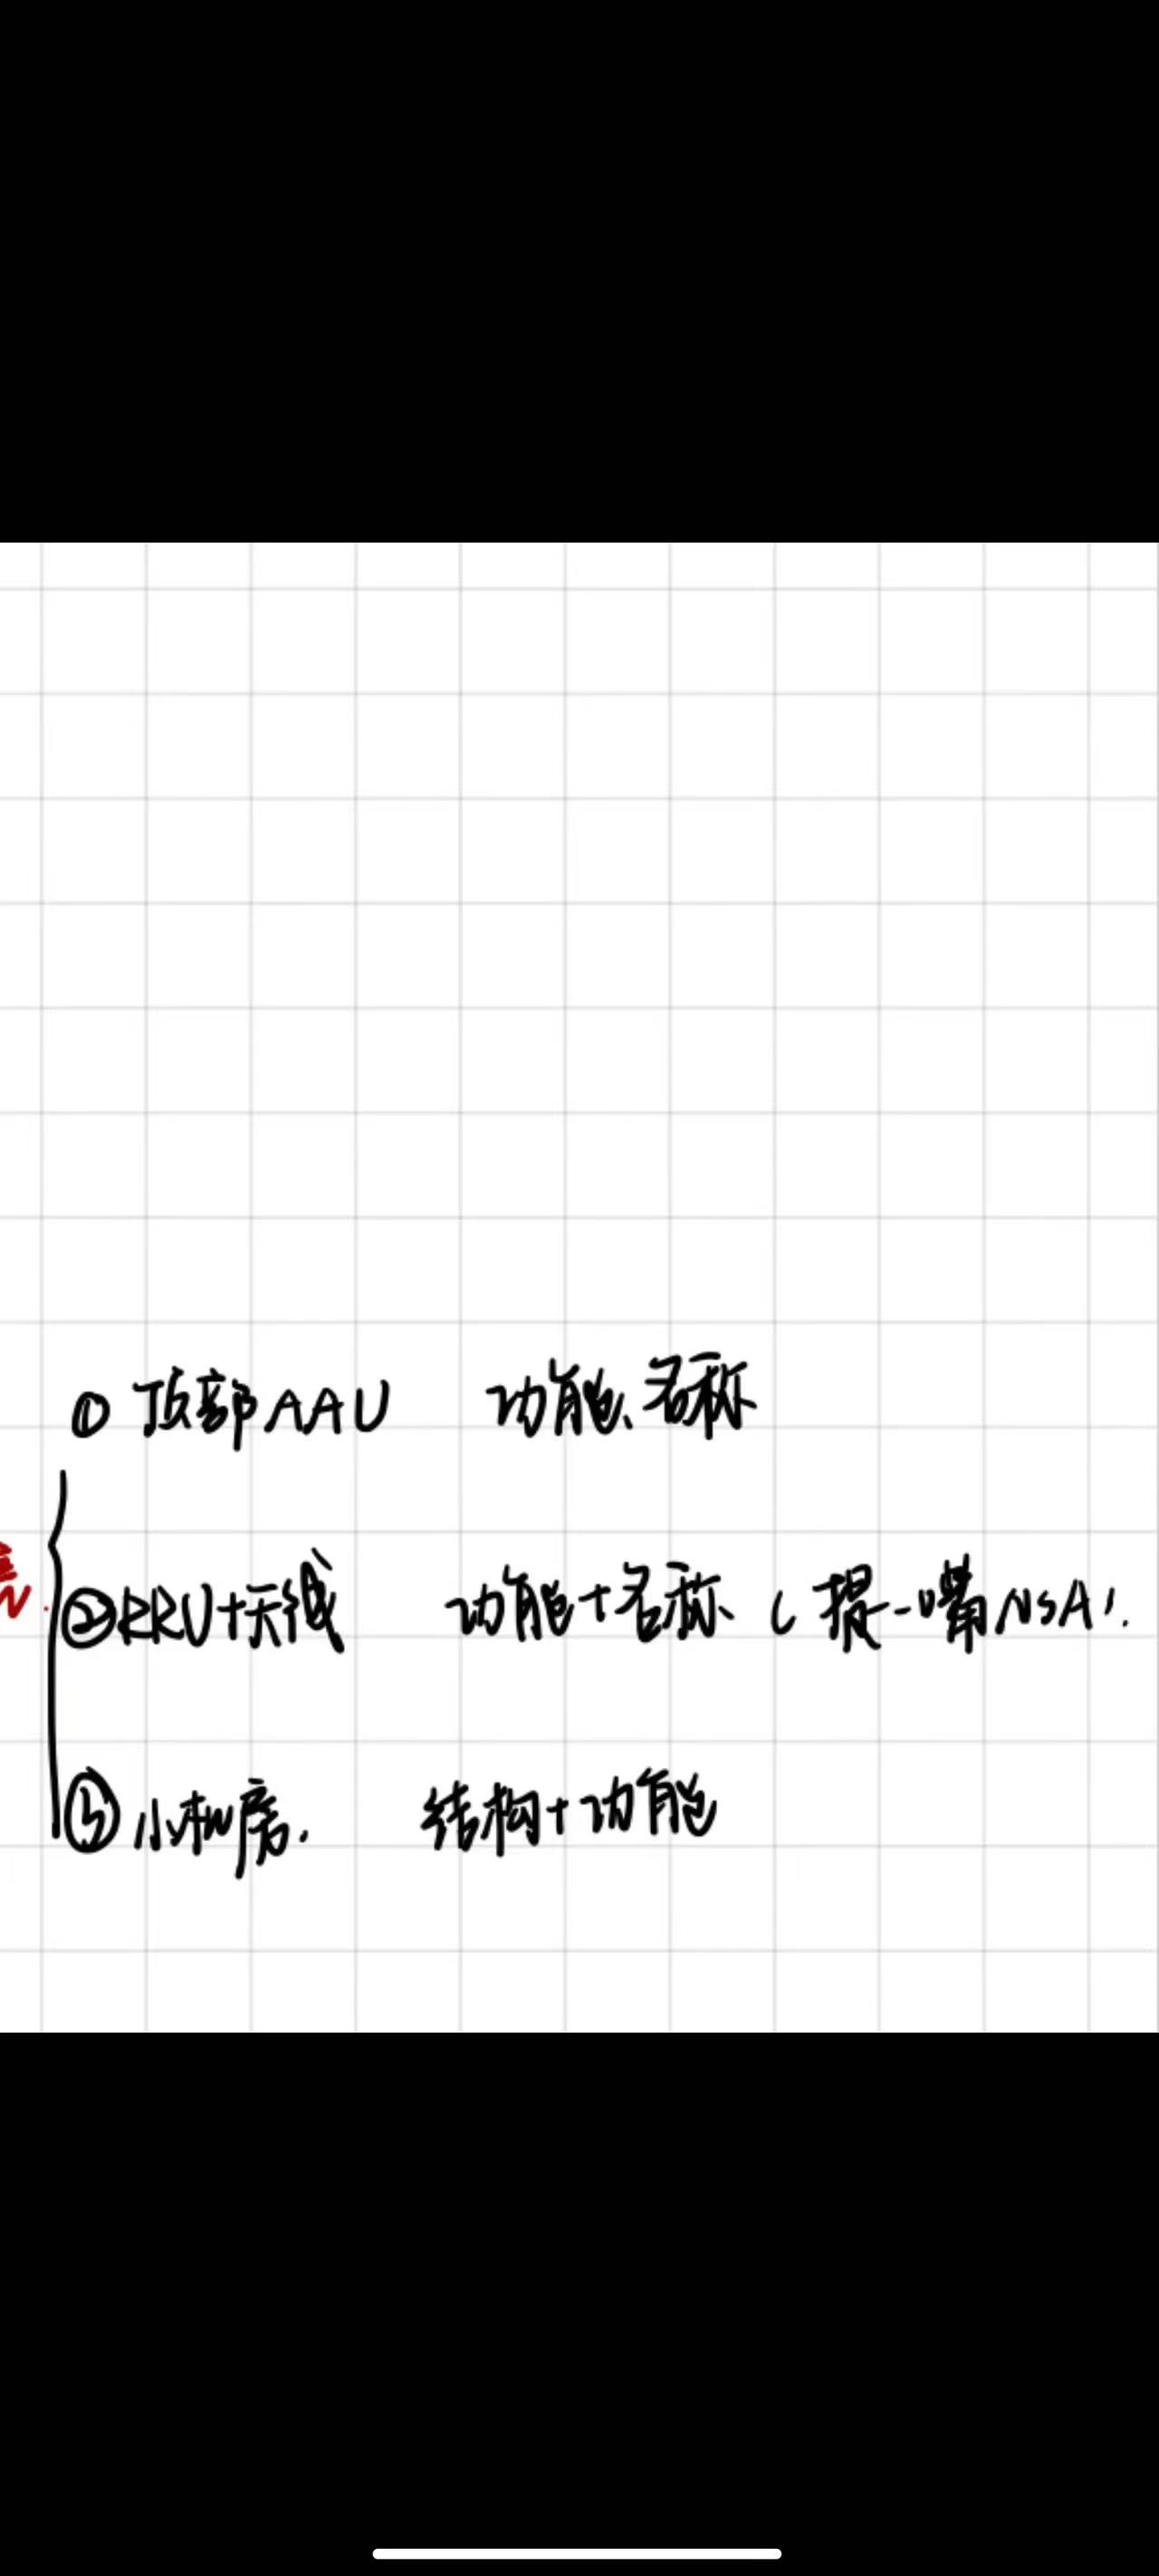 ① 顶部AAU 功能、名称
②RRU+天线 功能+名称（提一嘴NSA）.
③ 小机房. 结构+功能